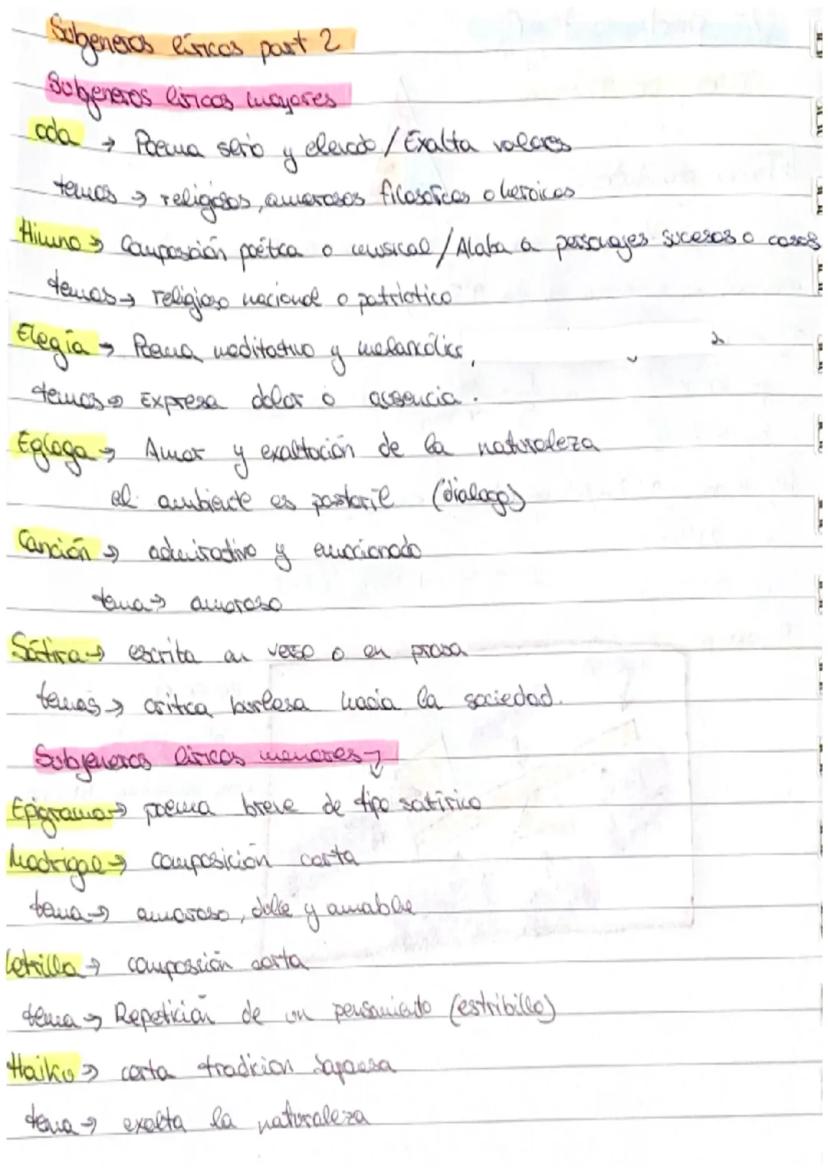 Subgeneros líricos part 2
Subgeneros líricos mayores
oda → Poema serio y elevado / Exalta valores
temas → religiosos, amorosos filosoficos o heroicos
Himno → Composición poética o musical / Alaba a personajes sucesos o cosas
temas → religioso nacional o patriotico
Elegía → Poema meditativo y melancólico,
temas → Expresa dolor o ausencia.
Egloga → Amor y exaltación de la naturaleza
el ambiente es pastoril (dialogo)
Canción → admirativo y emocionado
tema → amoroso
Sátira → escrita en verso o en prosa
temas → critica burlesa hacia la sociedad.
Subgeneros líricos menores →
Epigrama → poema breve de tipo satírico
Madrigal → composición corta
tema → amoroso, dulce y amable
Letrilla → composición corta
tema → Repetición de un pensamiento (estribillo)
Haiku → corta tradicion Japonesa
tema → exalta la naturaleza